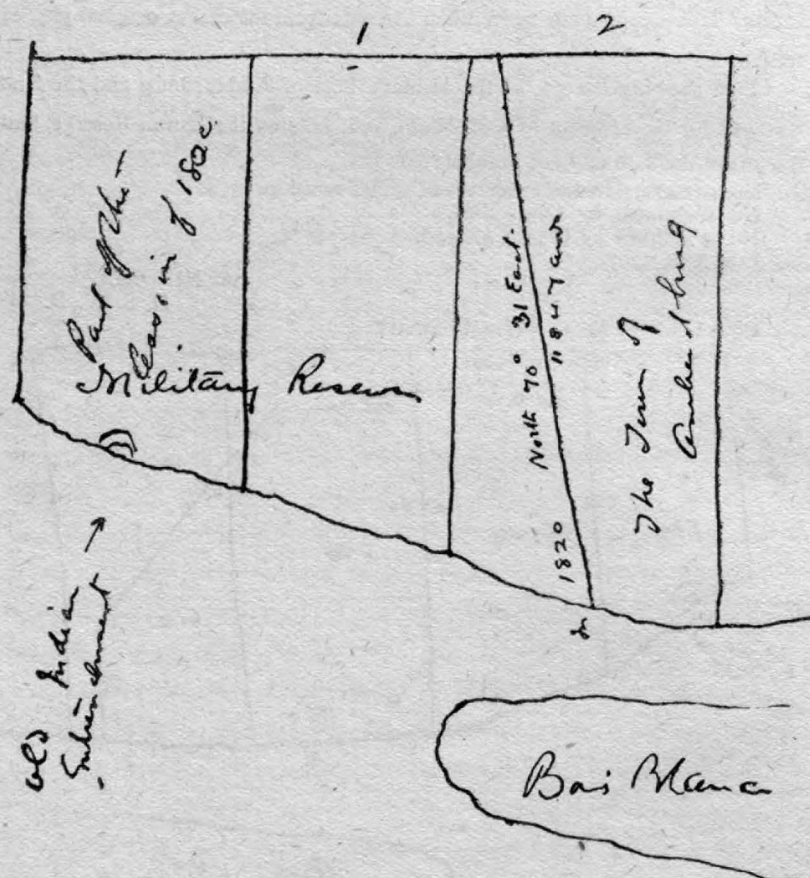 1
2
Part of the
Cession of 1800
Military Reserve
North 70° 31 East.
1847 yards
In 1820
The Town of
Amherstburg
Old Indian
Entrenchment
Bois Blanc